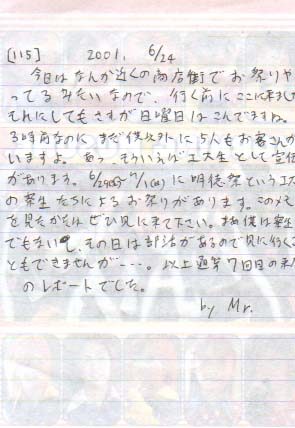 [115] 2001. 6/24
今日はなんか近くの商店街でお祭りや
ってるみたいなので、行く前にここに来まし
それにしてもさすが日曜日はこんでますね。
3時前なのに まだ僕以外に5人もお客さんが
いますよ。あっ、そういえば工大生として宣伝
があります。6/29(金)～7/1(日)に明徳祭という工大
の寮生たちによるお祭りがあります。このメモ
を見たかたはぜひ見に来て下さい。 僕は寮生
でもないし、その日は部活があるので見に行くこ
ともできませんが---。以上通算7回目の来
のレポートでした。
by Mr.